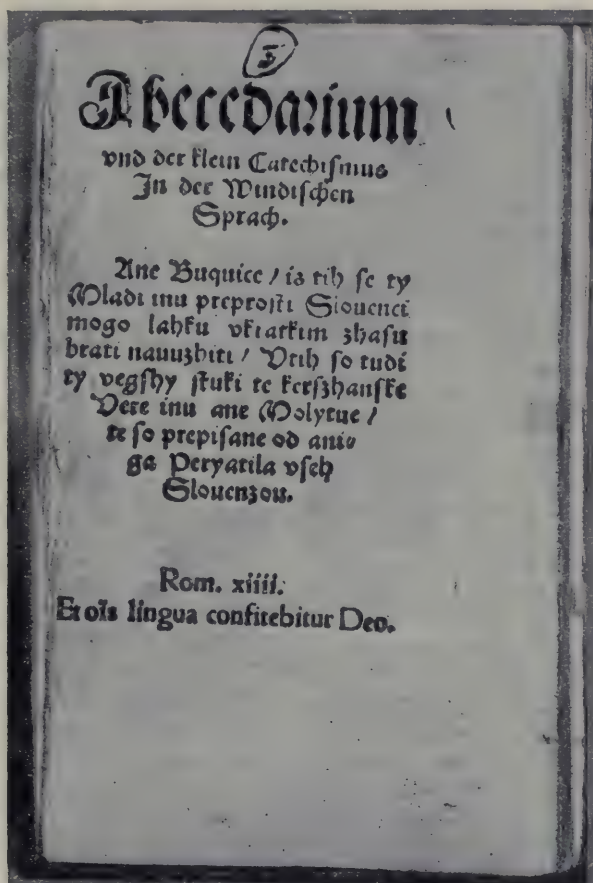 Abecedarium
vnd der klein Catechiſmus
In der Windiſchen
Sprach.
Ane Buquice / is tih ſe ty
Mladi inu preproſti Slouenci
mogo lahku vkratkim zhaſu
brati nauuzhiti / Vtih ſo tudi
ty vegſhy ſtuki te kerſzhanſke
Vere inu ane Molytue /
te ſo prepiſane od anio
ga Peryatila vſeh
Slouenzou.
Rom. xiiii.
Et oīs lingua confitebitur Deo.